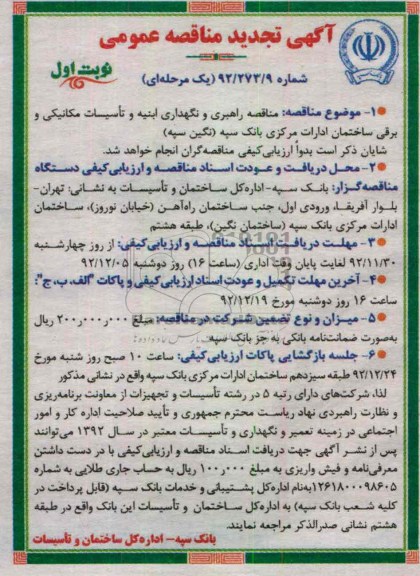 آگهی تجدید مناقصه عمومی
نوبت اول
شماره ۹۲/۲۷۳/۹ (یک مرحله‌ای)
۱- موضوع مناقصه: مناقصه راهبری و نگهداری ابنیه و تأسیسات مکانیکی و
برقی ساختمان ادارات مرکزی بانک سپه (نگین سپه)
شایان ذکر است بدواً ارزیابی کیفی مناقصه‌گران انجام خواهد شد.
۲- محل دریافت و عودت اسناد مناقصه و ارزیابی کیفی دستگاه
مناقصه گزار: بانک سپه- اداره‌کل ساختمان و تأسیسات به نشانی: تهران-
بلوار آفریقا، ورودی اول، جنب ساختمان راه‌آهن (خیابان نوروز)، ساختمان
ادارات مرکزی بانک سپه (ساختمان نگین)، طبقه هشتم
۳- مهلت دریافت اسناد مناقصه و ارزیابی کیفی: از روز چهارشنبه
۹۲/۱۱/۳۰ لغایت پایان وقت اداری (ساعت ۱۶) روز دوشنبه ۹۲/۱۲/۰۵
۴- آخرین مهلت تکمیل و عودت اسناد ارزیابی کیفی و پاکات "الف، ب، ج":
ساعت ۱۶ روز دوشنبه مورخ ۹۲/۱۲/۱۹
۵- میزان و نوع تضمین شرکت در مناقصه: مبلغ ۲۰۰٫۰۰۰٫۰۰۰ ریال
به‌صورت ضمانت‌نامه بانکی به جز بانک سپه.
۶- جلسه بازگشایی پاکات ارزیابی کیفی: ساعت ۱۰ صبح روز شنبه مورخ
۹۲/۱۲/۲۴ طبقه سیزدهم ساختمان ادارات مرکزی بانک سپه واقع در نشانی مذکور
لذا، شرکت‌های دارای رتبه ۵ در رشته تأسیسات و تجهیزات از معاونت برنامه‌ریزی
و نظارت راهبردی نهاد ریاست محترم جمهوری و تأیید صلاحیت اداره کار و امور
اجتماعی در زمینه تعمیر و نگهداری و تأسیسات معتبر در سال ۱۳۹۲ می‌توانند
پس از نشر آگهی جهت دریافت اسناد مناقصه و ارزیابی کیفی با در دست داشتن
معرفی‌نامه و فیش واریزی به مبلغ ۱۰۰٫۰۰۰ ریال به حساب جاری طلایی به شماره
۱۲۶۱۸۰۰۰۹۸۶۰۵ به‌نام اداره‌کل پشتیبانی و خدمات بانک سپه (قابل پرداخت در
کلیه شعب بانک سپه) به اداره‌کل ساختمان و تأسیسات این بانک واقع در طبقه
هشتم نشانی صدرالذکر مراجعه نمایند.
بانک سپه- اداره‌کل ساختمان و تأسیسات